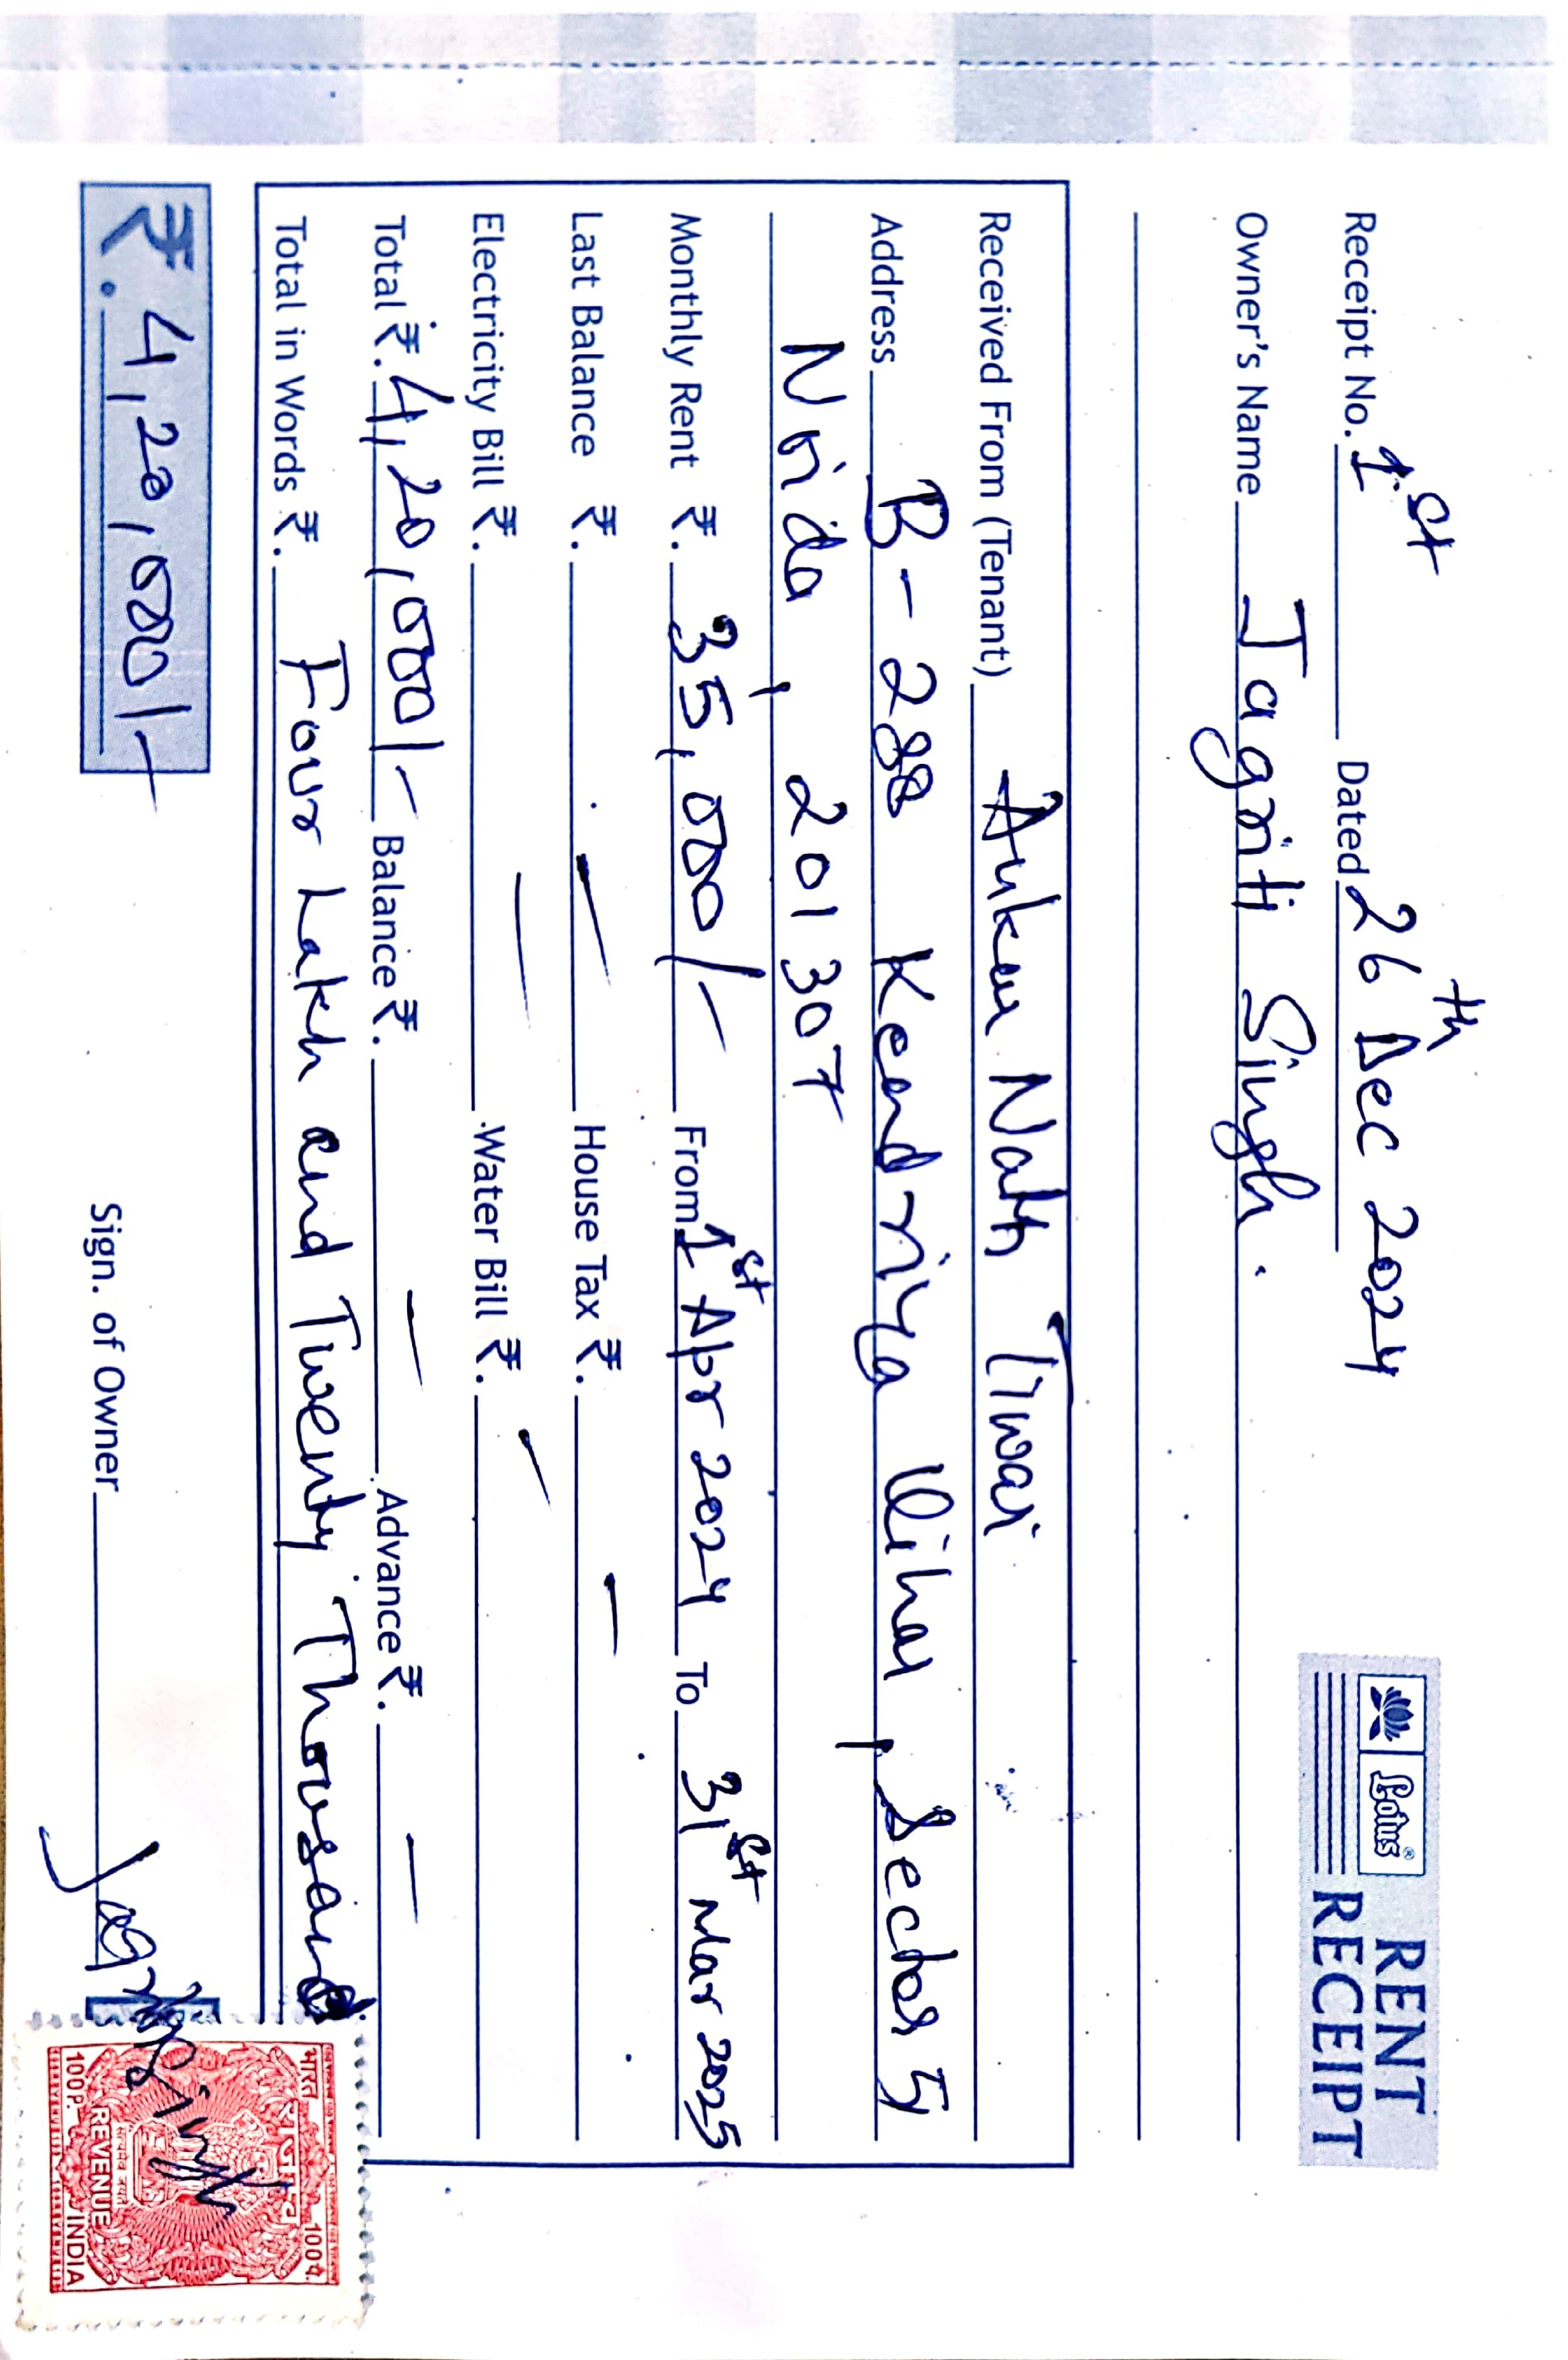 Lotus® RENT RECEIPT
Receipt No. 1st Dated 26th Dec 2024
Owner's Name Jagriti Singh.
Received From (Tenant) Ankur Nath Tiwari
Address B-288 Kendriya Vihar, Sector 51
Noida, 201307
Monthly Rent ₹. 35,000/- From 1st Apr 2024 To 31st Mar 2025
Last Balance ₹. - House Tax ₹. -
Electricity Bill ₹. - Water Bill ₹. -
Total ₹. 4,20,000/- Balance ₹. - Advance ₹. -
Total in Words ₹. Four Lakh and Twenty Thousand
₹. 4,20,000/-
Sign. of Owner Jagriti Singh
भारत 100प.
राजस्व
सत्यमेव जयते
REVENUE
100P. INDIA